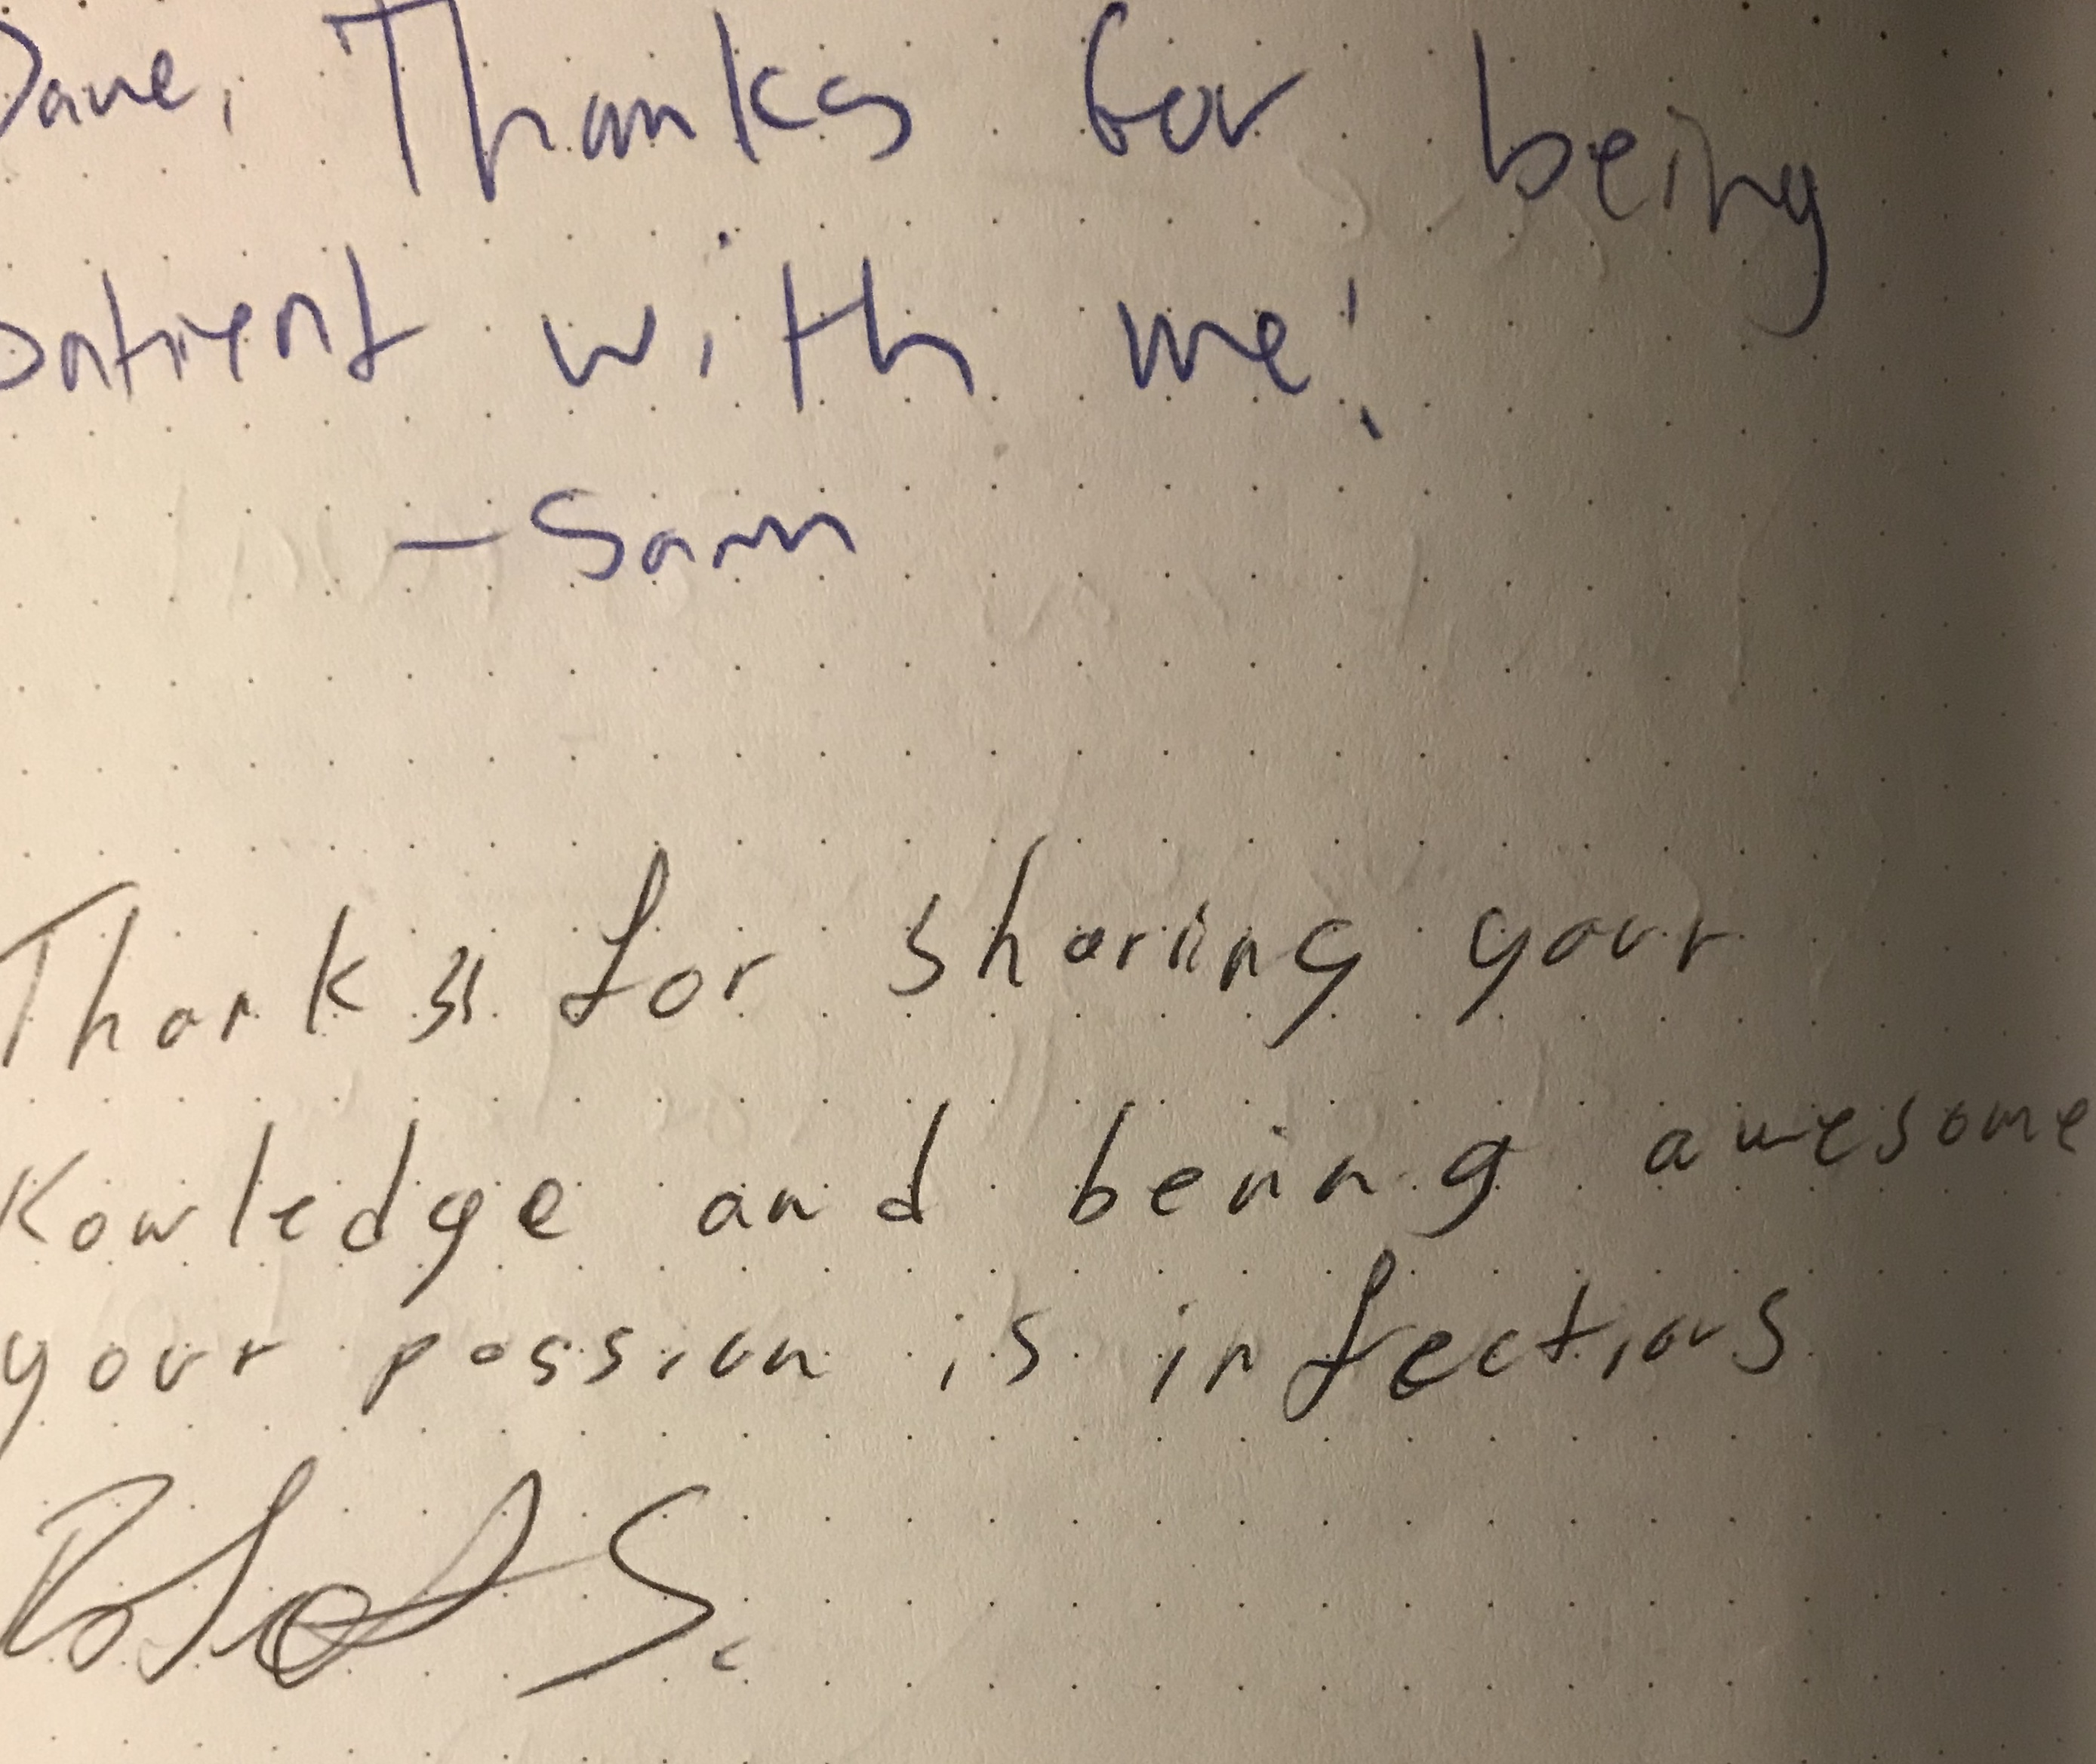 Dave, Thanks for being
patient with me!
—Sam
Thanks for sharing your
Kowledge and being awesome
your passion is infectious
S.